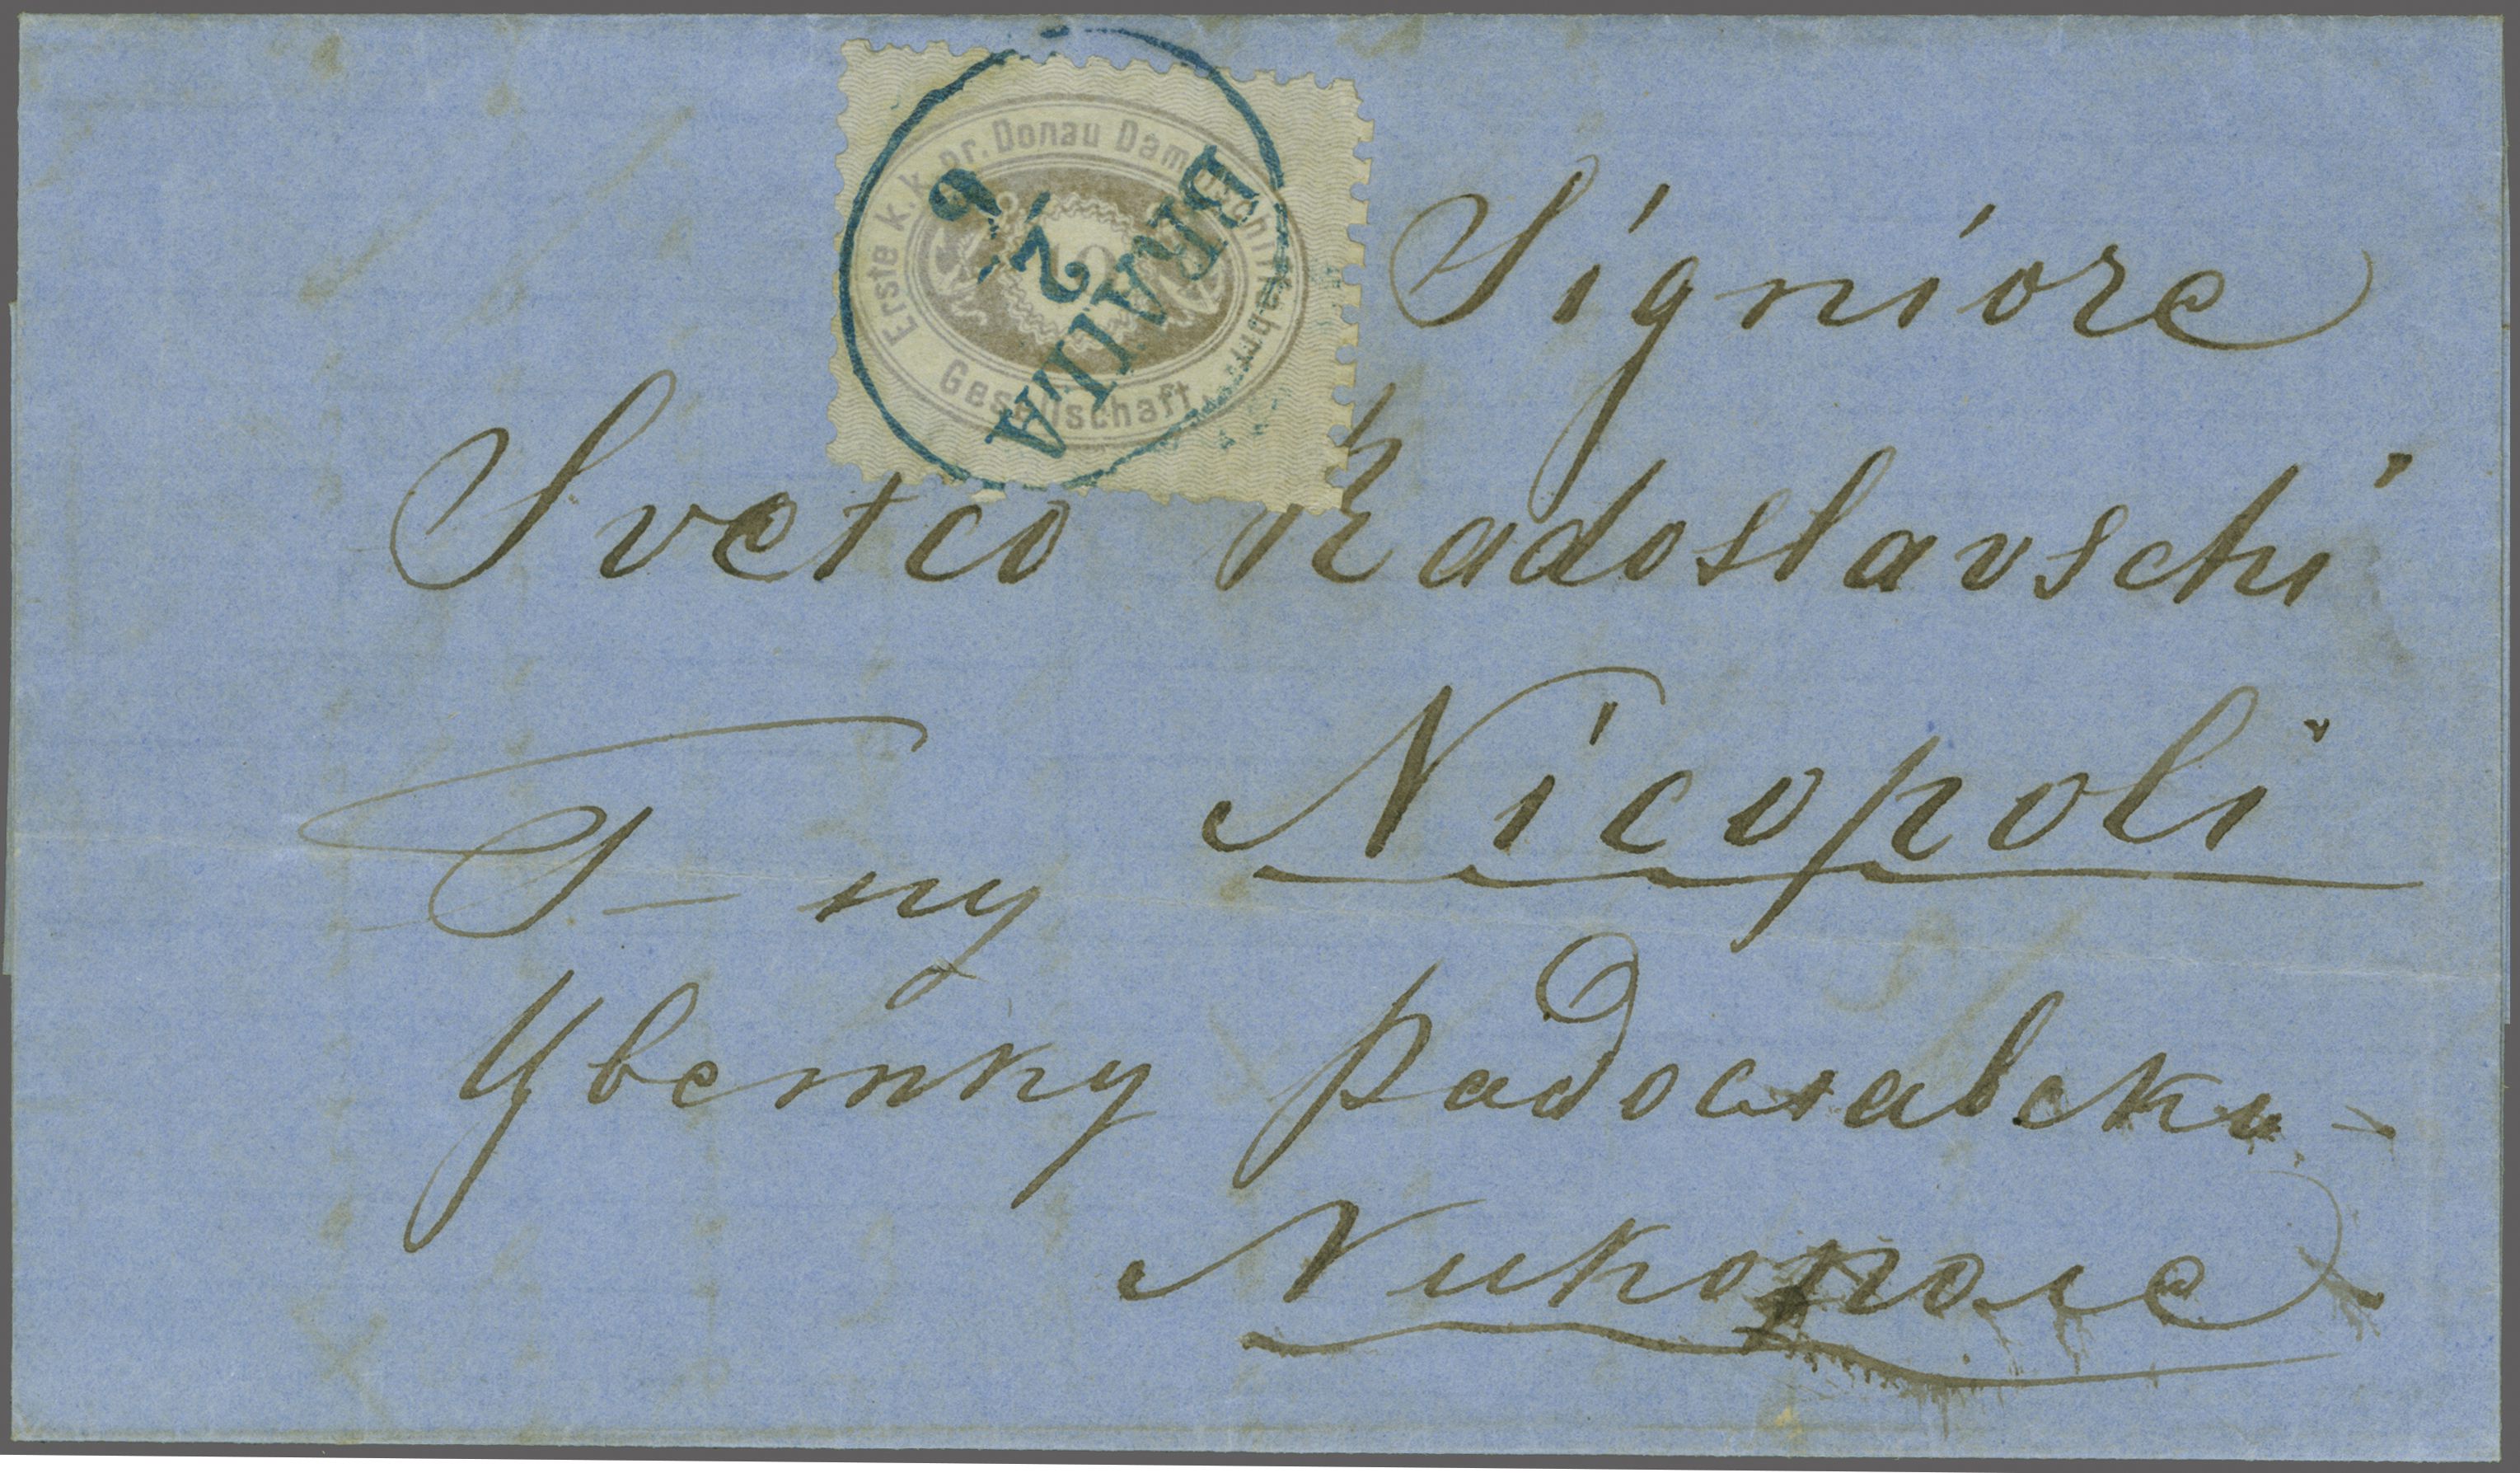 Erste k. k. pr. Donau Dampfschiffahrt
Gesellschaft
BRAILA
2
6
Signiore
Svetco Radoslavschi
Nicopoli
Г–ну
Цветку Радославски
Никополе